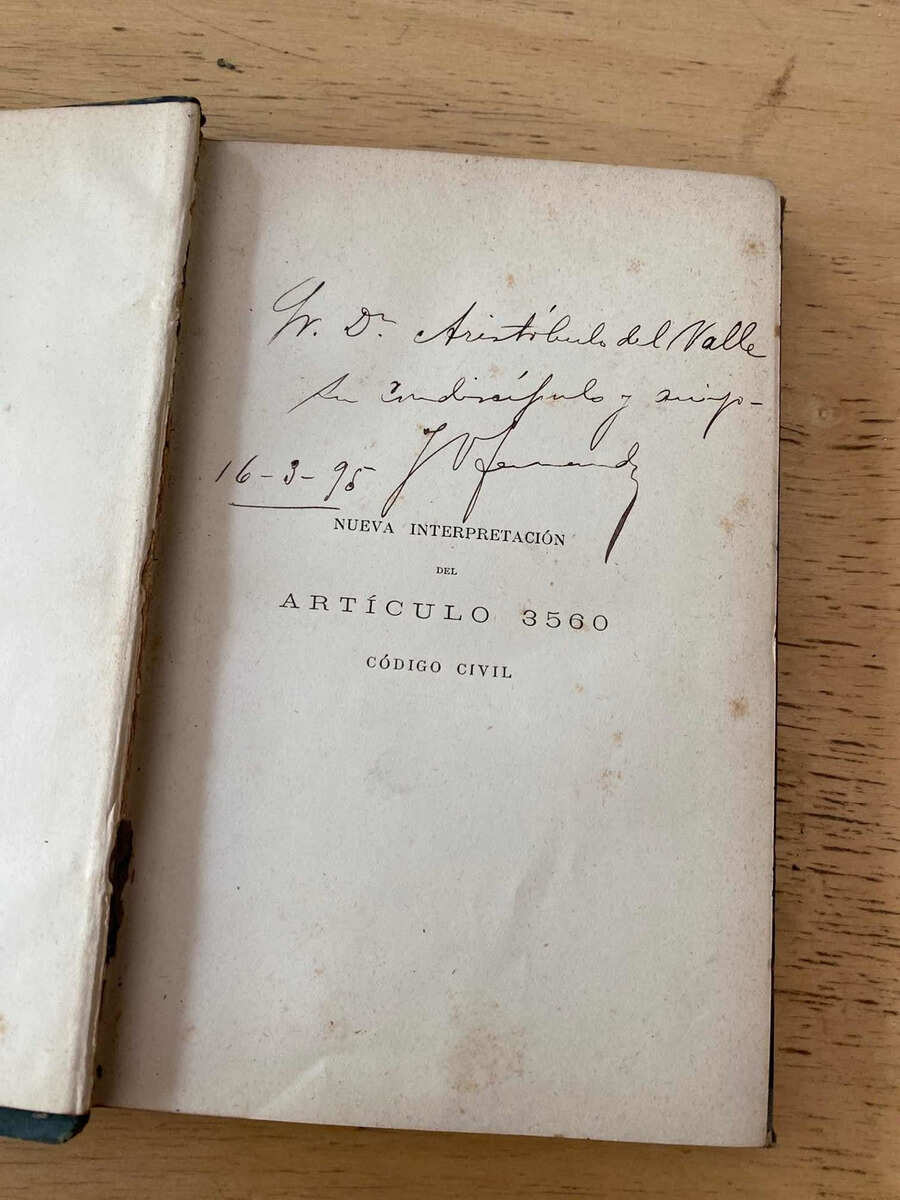 Sr. Dr Aristóbulo del Valle
su condiscípulo y amigo-
16-3-95 J V Fernandez
NUEVA INTERPRETACIÓN
DEL
ARTÍCULO 3560
CÓDIGO CIVIL